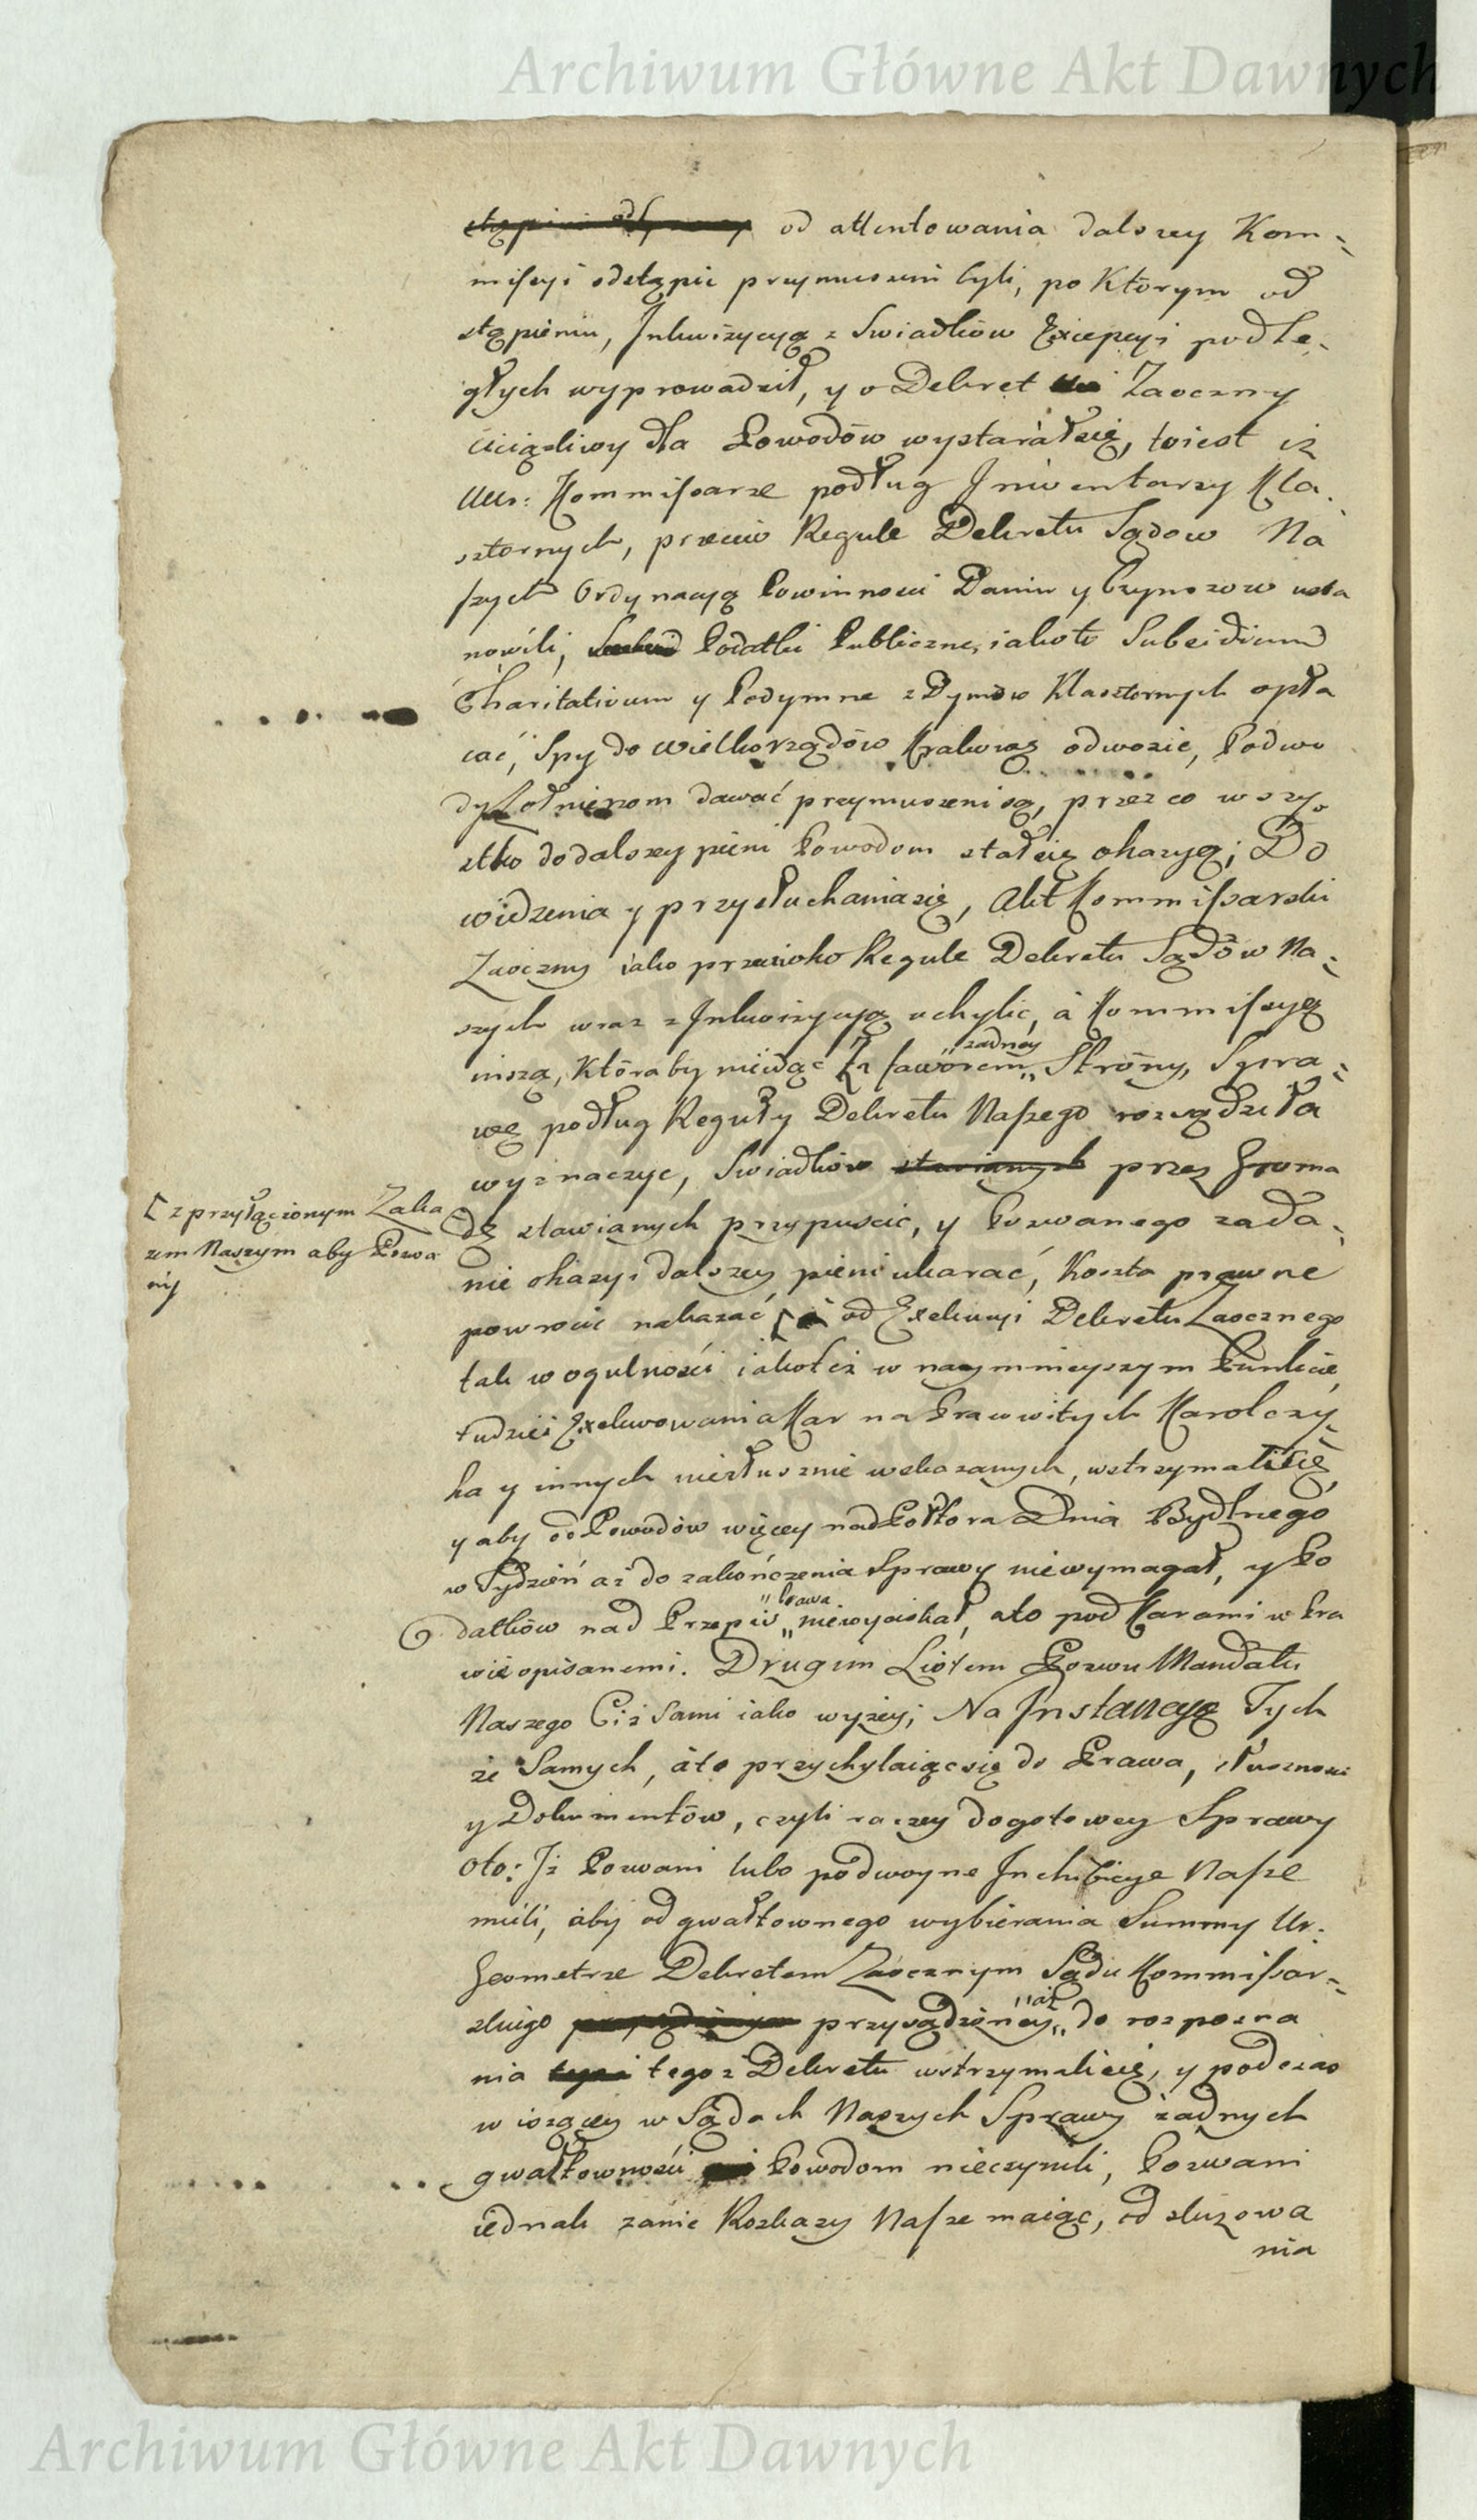 Archiwum Główne Akt Dawnych
od attentowania dalszey Kom=
missyi odstąpic przymuszeni byli, po Którym od
stąpieniu, Inkwizycyą z Swiadków Excepcyi podle=
głych wyprowadził, y o Dekret Zaoczny
uciązliwy dla Powodów wystarał się, toiest iz
Urr: Kommissarze podług Inwentarzy Kla=
sztornych, przeciw Regule Dekretu Sądow Na
szych Ordynacyą Powinnosci Danin y Czynszow usta
nowili, Podatki Publiczne, iakoto Subsidium
Charitativum y Podymne z Dymów Klasztornych opła
cać, Spy do Wielkorządów Krakows odwozic, Podwo
dy Zołnierzom dawać przymuszeni są, przez co wszy=
stko do dalszey pieni Powodom stał się okazyą; Do
widzenia y przysłuchania się, Akt Kommissarski
Zaoczny iako przeciwko Regule Dekretu Sądów Na=
szych wraz z Inkwizycyą uchylic, à Kommissyą
inszą, Któraby nieidąc za fawórem „żadney Stróny, Spra=
wę podług Reguły Dekretu Naszego rozsądziła
wyznaczyc, Swiadków stawianych przez Groma
dę stawianych przypuscic, y Pozwanego zada=
nie okazyi dalszey pieni ukarać, Koszta prawne
powrócic nakazać [ od Exekucyi Dekretu Zaocznego
[ z przyłączonym Zaka
zem Naszym aby Pozwa
ny
tak w ogulności iakoteż w naymnieyszym Punkcie,
tudziez Exekwowania Kar na Pracowitych Karolczy=
ka y innych niesłusznie wskazanych, wstrzymali się,
y aby od Powodów więcey nad Połtora Dnia Bydlnego
w Tydzień aż do zakończenia Sprawy niewymagał, y Po
datków nad Przepis „Prawa niewyciskał, ato pod Karami w Pra
wie opisanemi. Drugim Listem Pozwu Mandatu
Naszego Ciż Sami iako wyżey; Na Instancyą Tych
że Samych, áto przychylaiąc się do Prawa, słusznosci
y Dokumentów, czyli raczey do gotowey Sprawy
oto: Iż Pozwani lubo podwoyne Inchibicye Nasze
mieli, aby od gwałtownego wybierania Summy Ur:
Geometrze Dekretem Zaocznym Sądu Kommissar=
skiego przysądzoney, „aż do rozpozna
nia tegoz Dekretu wstrzymali się, y podczas
wiszącey w Sądach Naszych Sprawy żadnych
gwałtowności Powodom nieczynili, Pozwani
iednak zanic Rozkazy Nasze maiąc, od sluzowa
nia
Archiwum Główne Akt Dawnych